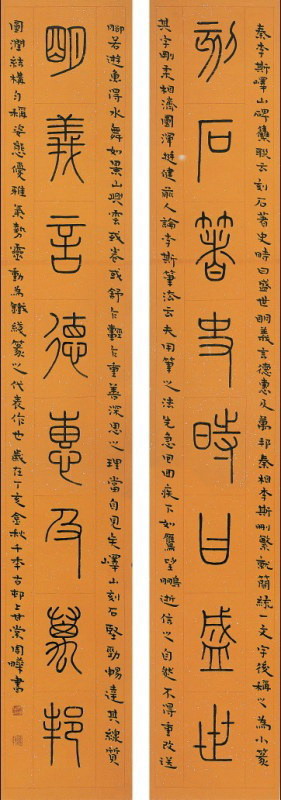 秦李斯嶧山碑集聯云刻石著史時曰盛世朙義言德惠及萬邦秦相李斯刪繁就簡統一文字後稱之為小篆
刻石著史時曰盛世
其字剛柔相濟圓渾挺健前人論李斯筆法云夫用筆之法先急回回疾下如鷹望鵬逝信之自然不得重改送
腳若遊魚得水舞如景山興雲或卷或舒乍輕乍重善深思之理當自見矣嶧山刻石堅勁暢達其線質
朙義言德惠及萬邦
圓潤結構勻稱姿態優雅氣勢靈動為鐵線篆之代表作也歲在丁亥金秋千本古邨周曄書